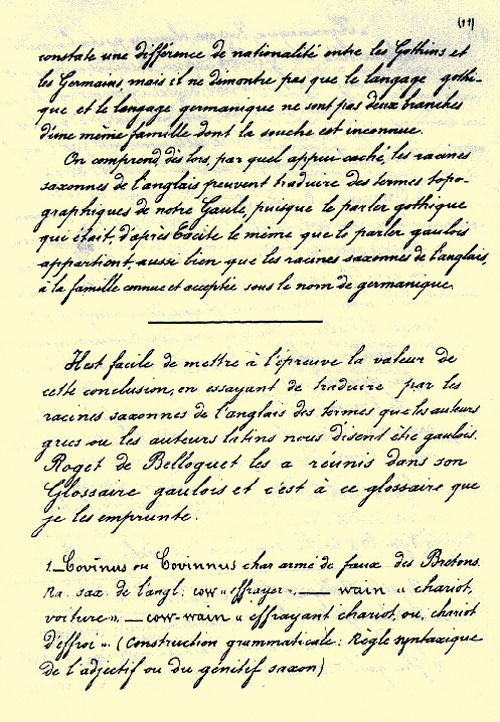 (11)
constate une différence de nationalité entre les Gothins et
les Germains, mais il ne démontre pas que le langage gothi-
que et le langage germanique ne sont pas deux branches
d'une même famille dont la souche est inconnue.
On comprend, dès lors, par quel appui caché, les racines
saxonnes de l'anglais peuvent traduire des termes topo-
graphiques de notre Gaule, puisque le parler gothique
qui était, d'après Tacite le même que le parler gaulois
appartient, aussi bien que les racines saxonnes de l'anglais,
à la famille connue et acceptée sous le nom de germanique.
Il est facile de mettre à l'épreuve la valeur de
cette conclusion, en essayant de traduire par les
racines saxonnes de l'anglais des termes que les auteurs
grecs ou les auteurs latins nous disent être gaulois.
Roget de Belloguet les a réunis dans son
Glossaire gaulois et c'est à ce glossaire que
je les emprunte.
1._Covinus ou Covinnus char armé de faux des Bretons.
Ra. sax. de l'angl: cow « effrayer », — wain « chariot,
voiture », — cow-wain « effrayant chariot, ou, chariot
d'effroi ». (Construction grammaticale: Règle syntaxique
de l'adjectif ou du génitif saxon)